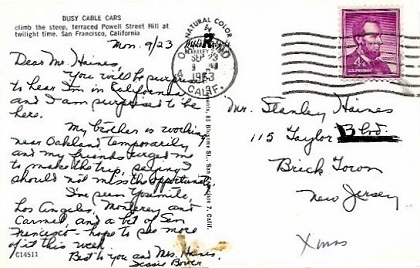 BUSY CABLE CARS
climb the steep, terraced Powell Street Hill at
twilight time, San Francisco, California
Mon. 9/23
Dear Mr. Haines,
You will be surprised
to hear I'm in California
and I am surprised to be
here.
My brother is working
near Oakland temporarily
and my friends urged me
to make the trip, saying I
should not miss the opportunity.
I've seen Yosemite,
Los Angeles, Monterey and
Carmel, and a bit of San
Francisco - hope to see more
of it this week.
Best to you and Mrs. Haines,
Jessie
C14511
NATURAL COLOR
SEP 23
1963
CALIF.
4¢
Mr. Stanley Haines
115 Taylor Blvd.
Brick Town
New Jersey
Xmas